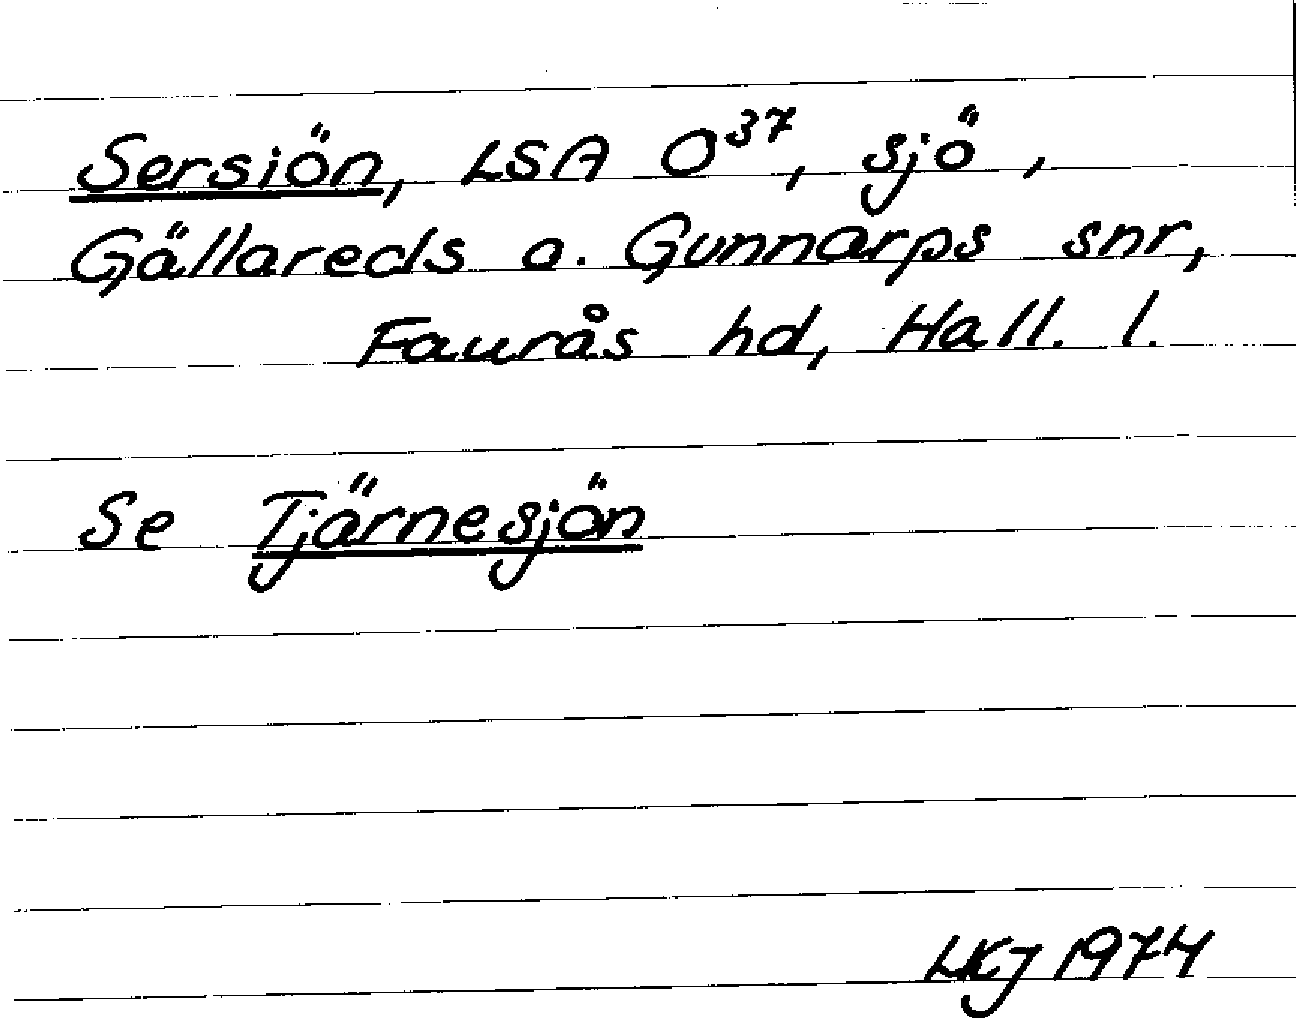 Sersiön, LSA O³⁷, sjö,
Gällareds o. Gunnarps snr,
Faurås hd, Hall. l.
Se Tjärnesjön
LKJ 1974